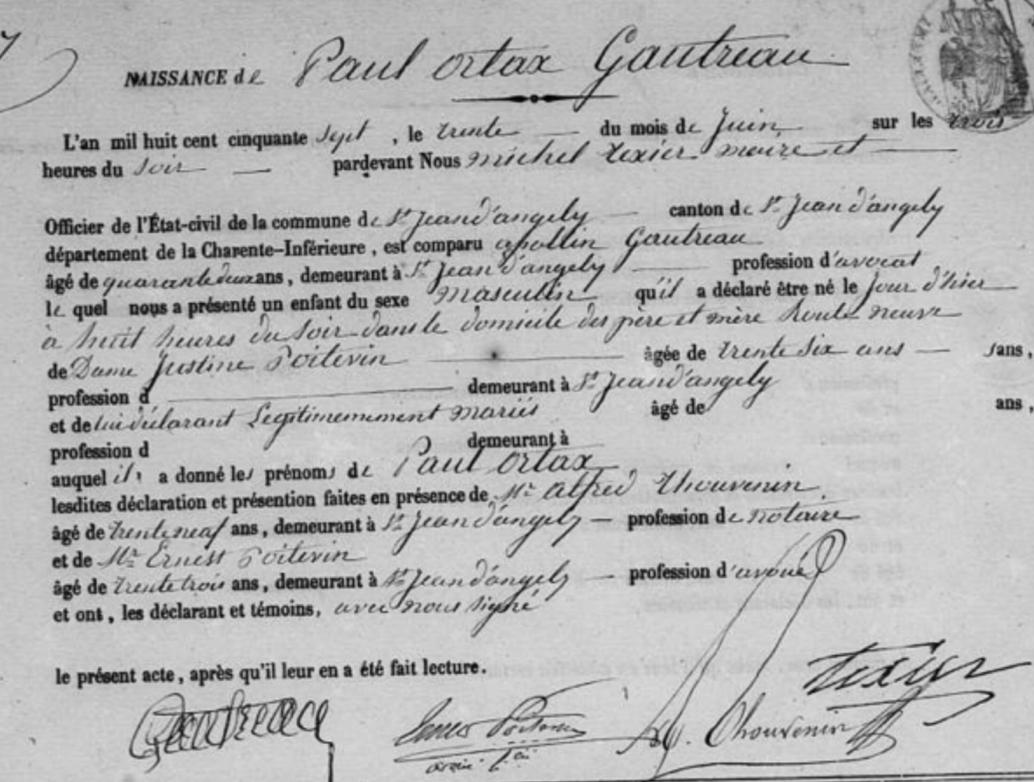 NAISSANCE de Paul ortax Gautreau
L'an mil huit cent cinquante sept, le trente du mois de Juin sur les trois
heures du soir pardevant Nous michel texier maire et
Officier de l'État-civil de la commune de St Jean d'angely canton de St Jean d'angely
département de la Charente-Inférieure, est comparu apollin Gautreau
âgé de quarante deux ans, demeurant à St Jean d'angely profession d'avocat
le quel nous a présenté un enfant du sexe masculin qu'il a déclaré être né le jour d'hier
à huit heures du soir dans le domicile des père et mère Route neuve
de Dame Justine Poitevin âgée de trente six ans sans,
profession d demeurant à St Jean d'angely
et de lui déclarant Legitimemement mariés âgé de ans,
profession d demeurant à
auquel il a donné les prénoms de Paul ortax
lesdites déclaration et présention faites en présence de Mr alfred Chouvenin
âgé de trente neuf ans, demeurant à St Jean d'angely profession de notaire
et de Mr Ernest Poitevin
âgé de trente trois ans, demeurant à St Jean d'angely profession d'avoué
et ont, les déclarant et témoins, avec nous signé
le présent acte, après qu'il leur en a été fait lecture.
texier
Gautreau Ernest Poitevin Chouvenin